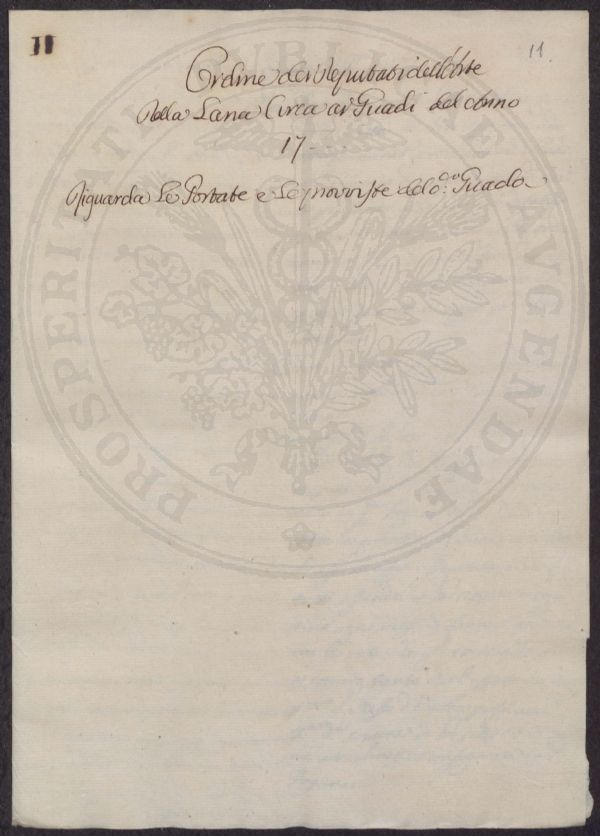 11
11
Ordine dei Deputati dell'Arte
della Lana Circa ai Guadi del anno
17....
Riguarda Le Portate e Le provviste del d.o Guado
PROSPERITATI PUBLICAE AVGENDAE